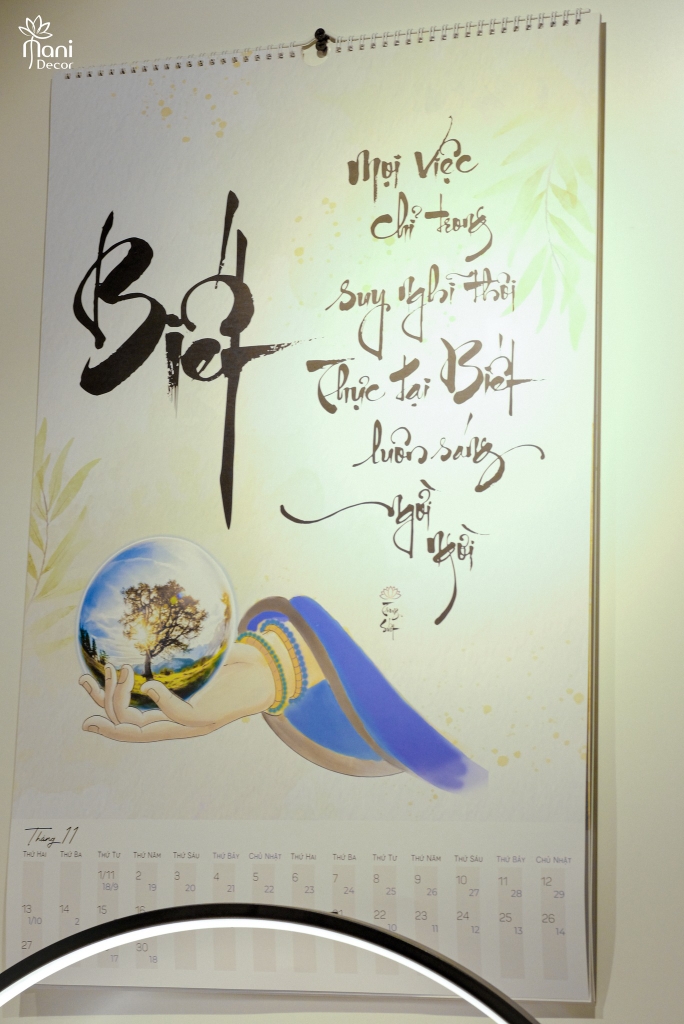 Mani
Decor
Biết
Mọi việc
chỉ trong
suy nghĩ thôi
Thực tại Biết
luôn sáng
ngời
ngời
Tháng 11
THỨ HAI THỨ BA THỨ TƯ THỨ NĂM THỨ SÁU THỨ BẢY CHỦ NHẬT THỨ HAI THỨ BA THỨ TƯ THỨ NĂM THỨ SÁU THỨ BẢY CHỦ NHẬT
1/11 2 3 4 5 6 7 8 9 10 11 12
18/9 19 20 21 22 23 24 25 26 27 28 29
13 14 15 16 21 22 23 24 25 26
1/10 2 10 11 12 13 14
27 30
17 18